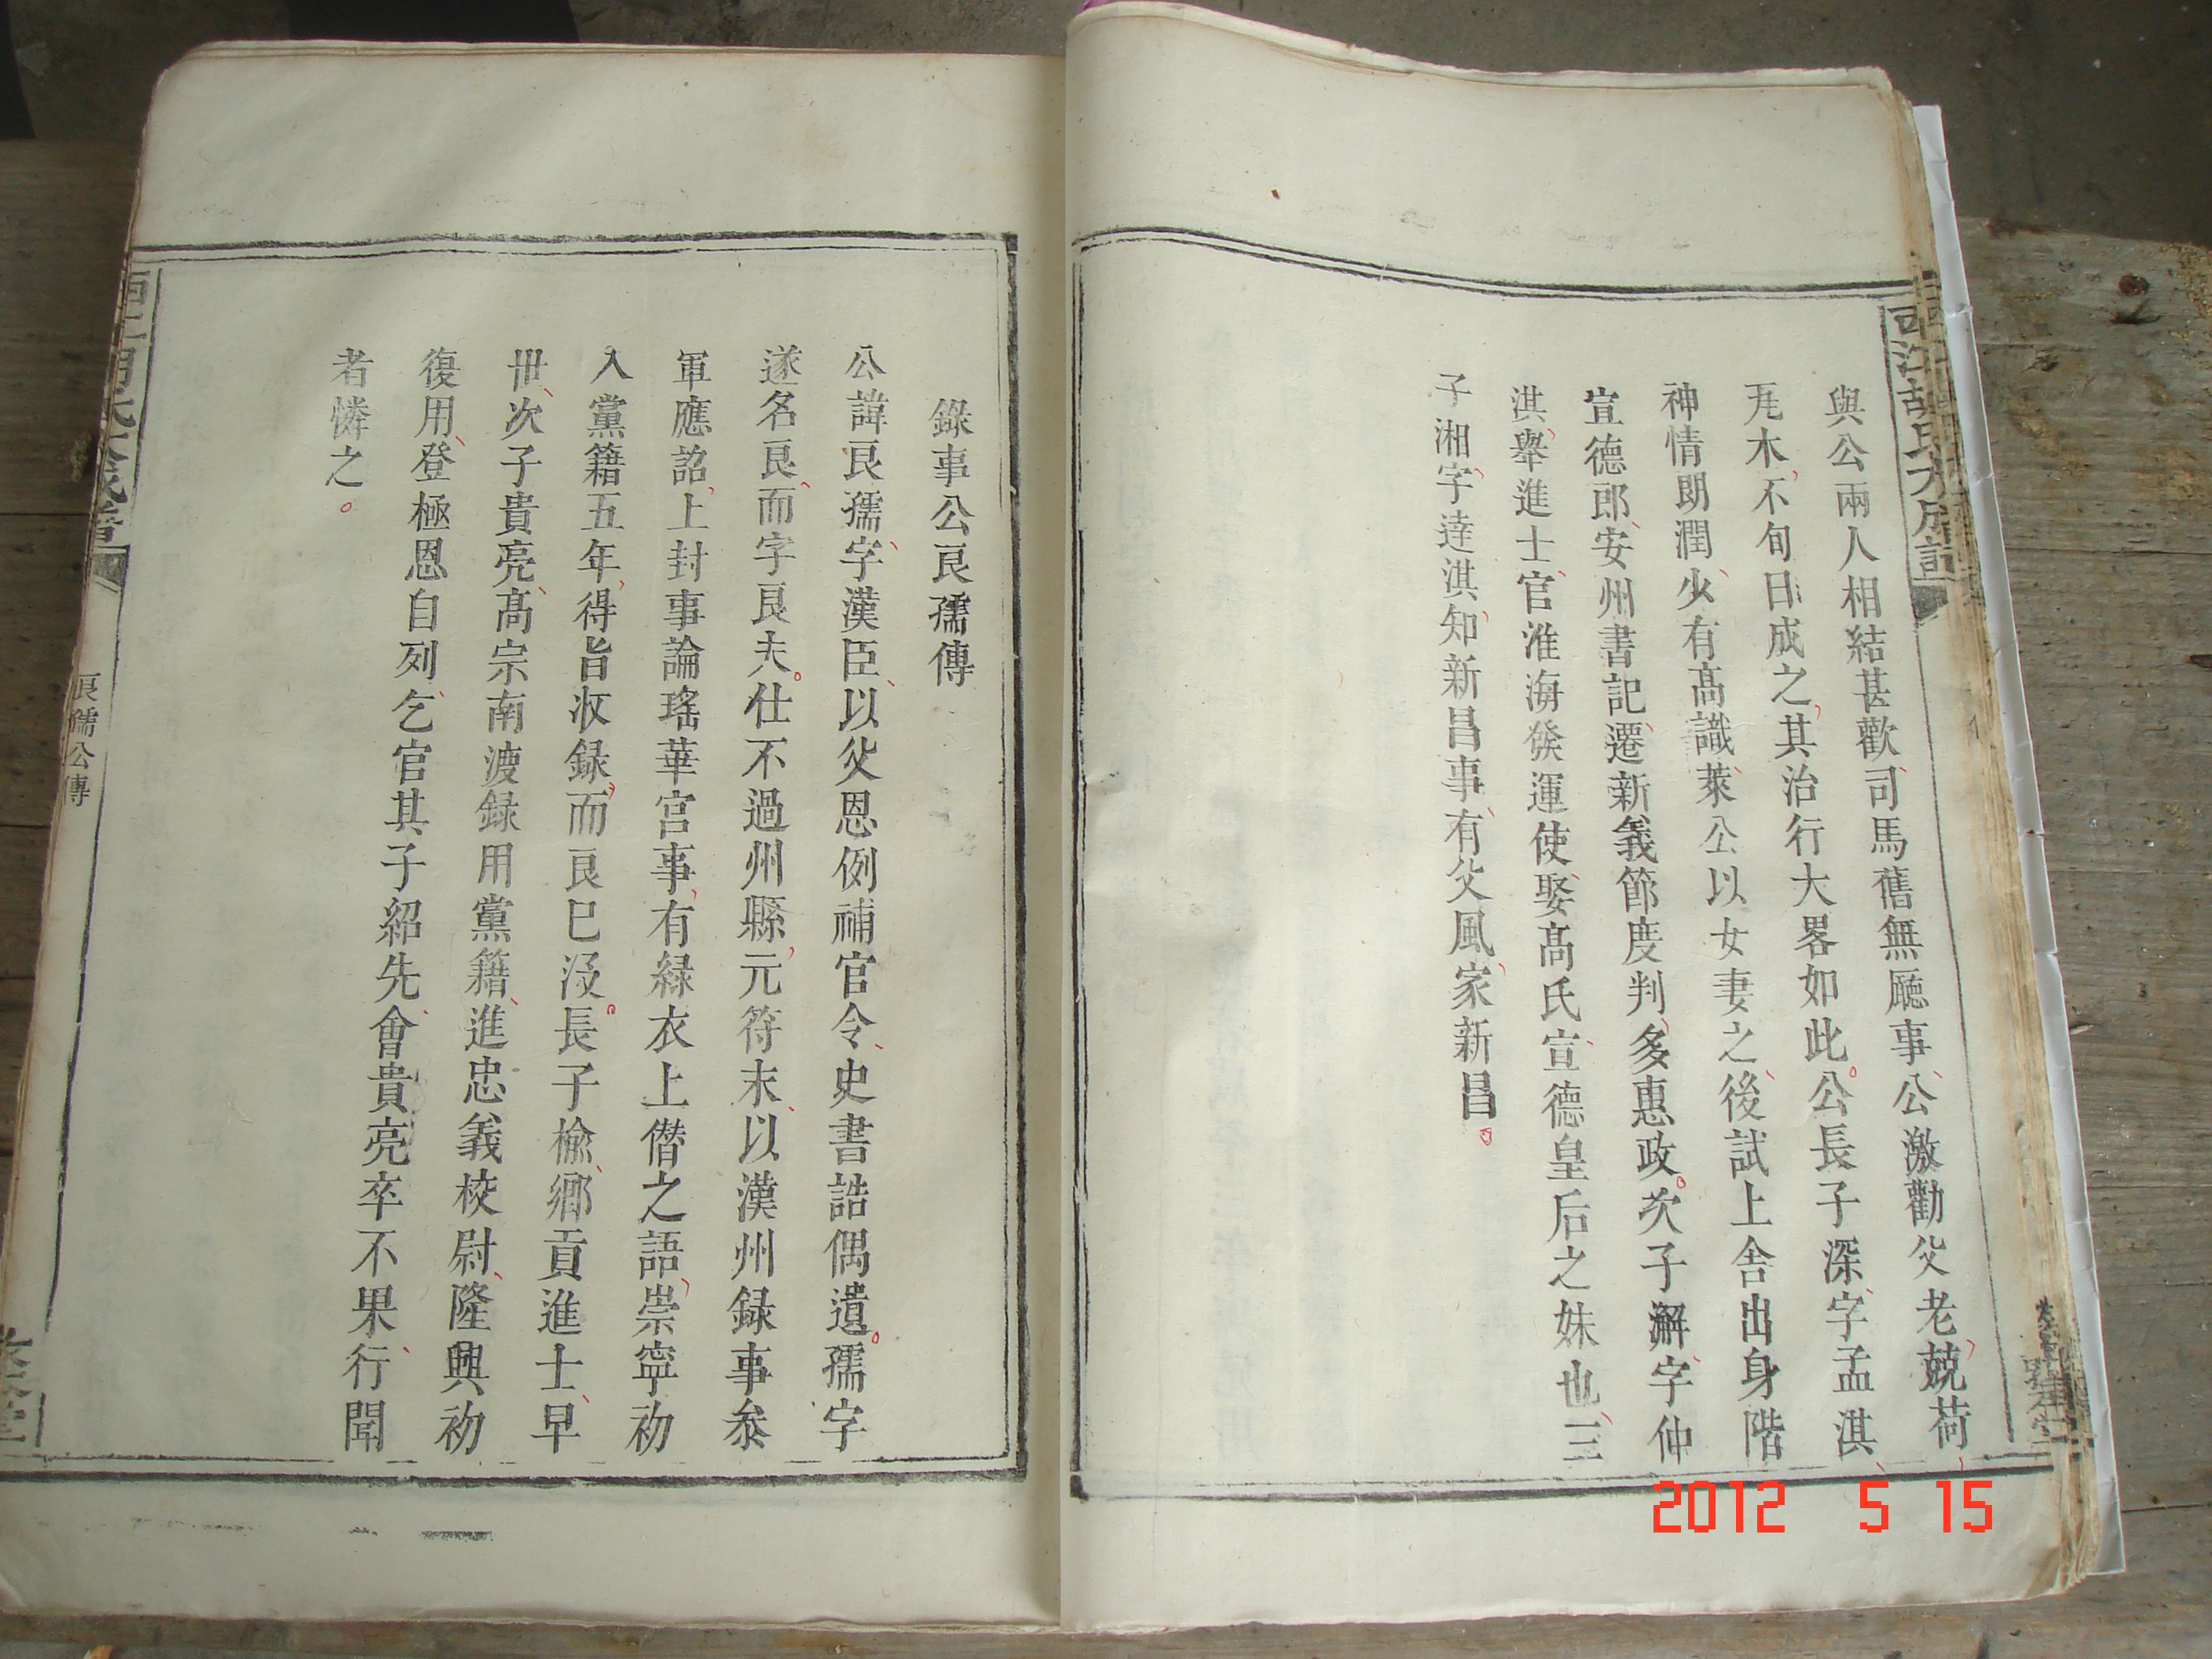 與公兩人相結甚歡司馬舊無廳事公激勸父老兢荷
尾木不旬日成之其治行大畧如此公長子深字孟淇
神情朗潤少有高識萊公以女妻之後試上舍出身階
宣德郎安州書記遷新義節度判多惠政次子澥字仲
淇舉進士官淮海發運使娶高氏宣德皇后之妹也三
子湘字逹淇知新昌事有父風家新昌
錄事公良孺傳
公諱良孺字漢臣以父恩例補官令史書誥偶遺孺字
遂名良而字良夫仕不過州縣元符末以漢州録事叅
軍應詔上封事論瑤華宮事有緑衣上僭之語崇寧初
入黨籍五年得旨收録而良已沒長子檢鄉貢進士早
丗次子貴亮高宗南渡録用黨籍進忠義校尉隆興初
復用登極恩自列乞官其子紹先會貴亮卒不果行聞
者憐之
良孺公傳
2012 5 15